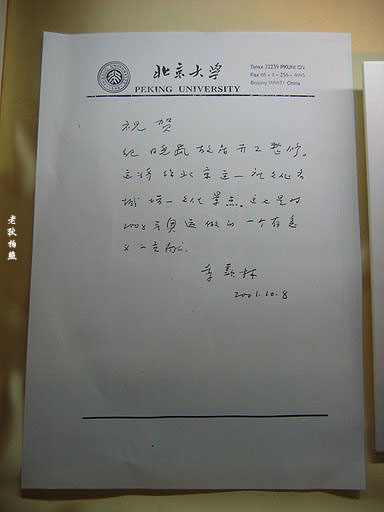 北京大学
PEKING UNIVERSITY
Telex 22239 PKUNI CN
Fax 86-1-256-4095
Beijing 100871 China
祝贺
纪晓岚故居开工整修。
这将给北京这一文化古
城增一文化景点。这也是对
2008年奥运做的一个有意
义的贡献。
季羡林
2001.10.8
老狄拍照